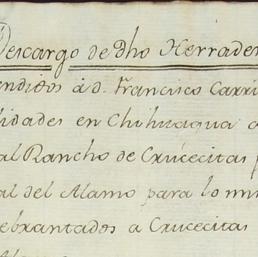 Descargo de Dho Herrader
endidos á D. Francisco Carri
lidades en Chihuagua a
al Rancho de Crucecitas p
al del Alamo para lo mi
ebrantados a Crucecitas